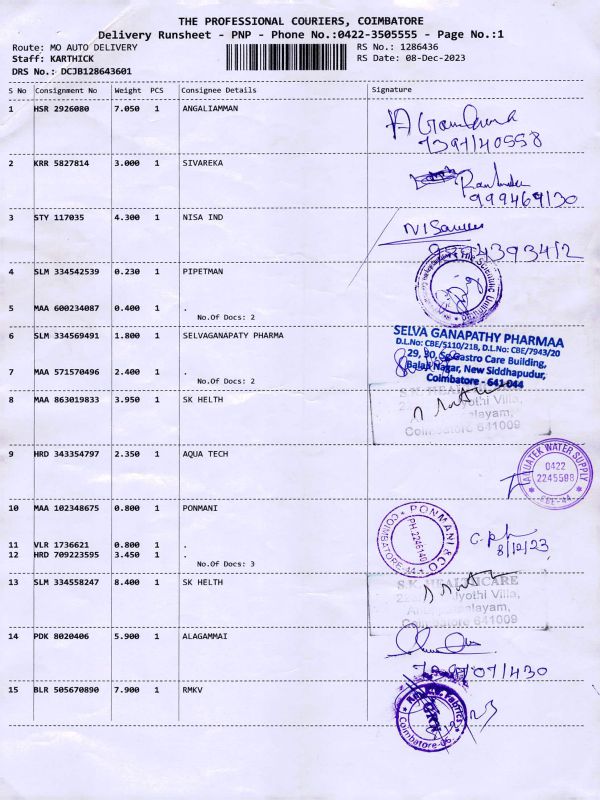 THE PROFESSIONAL COURIERS, COIMBATORE
Delivery Runsheet - PNP - Phone No.:0422-3505555 - Page No.:1
Route: MO AUTO DELIVERY
RS No.: 1286436
Staff: KARTHICK
RS Date: 08-Dec-2023
DRS No.: DCJB128643601
S No Consignment No Weight PCS Consignee Details Signature
1 HSR 2926080 7.050 1 ANGALIAMMAN
2 KRR 5827814 3.000 1 SIVAREKA
3 STY 117035 4.300 1 NISA IND
4 SLM 334542539 0.230 1 PIPETMAN
5 MAA 600234087 0.400 1 .
No.Of Docs: 2
6 SLM 334569491 1.800 1 SELVAGANAPATY PHARMA
SELVA GANAPATHY PHARMAA
D.L.No: CBE/5110/21B, D.L.No: CBE/7943/20
29, 30, Gastro Care Building,
Balaji Nagar, New Siddhapudur,
Coimbatore - 641 044
7 MAA 571570496 2.400 1 .
No.Of Docs: 2
8 MAA 863019833 3.950 1 SK HELTH
Coimbatore 641009
9 HRD 343354797 2.350 1 AQUA TECH
AQUATEK WATER SUPPLY
0422
2245598
CBE-44
10 MAA 102348675 0.800 1 PONMANI
PONMANI & CO
PH:2246140
COIMBATORE-44
8/12/23
11 VLR 1736621 0.800 1 .
12 HRD 709223595 3.450 1 .
No.Of Docs: 3
13 SLM 334558247 8.400 1 SK HELTH
S.K. HEALTHCARE
Jyothi Villa,
Coimbatore 641009
14 PDK 8020406 5.900 1 ALAGAMMAI
15 BLR 505670890 7.900 1 RMKV
Coimbatore-06